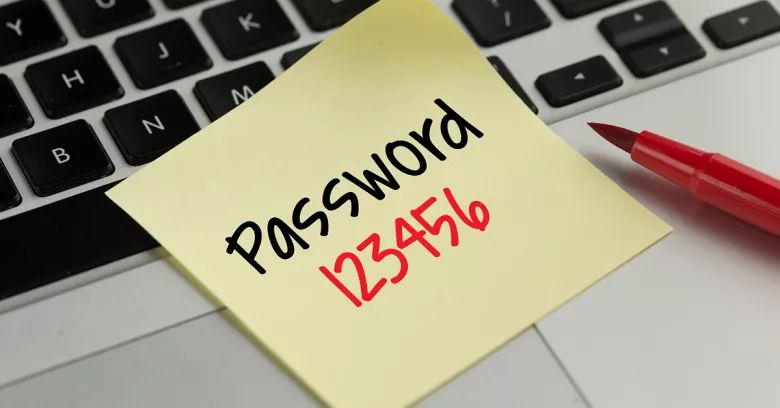 Y U
H J K
B N M
? /
Password
123456